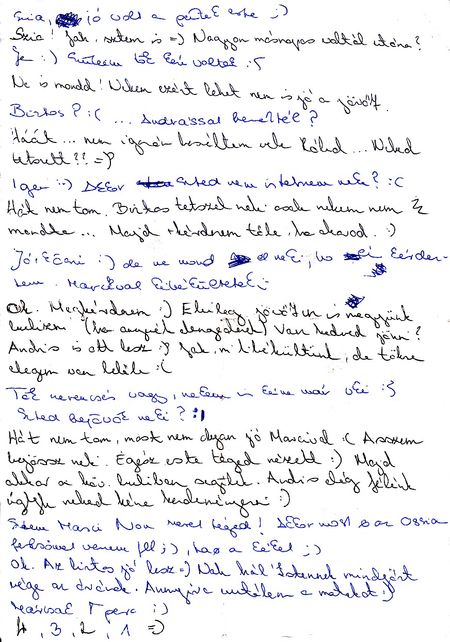 Szia, jó volt a péntek este :)
Szia! Jah, sztem is =) Nagyon másnapos voltál utána?
Ja :) Eléggé kész voltál :S
Ne is mondd! Nekem ezért lehet nem is jó a jövő
Biztos? :( ... Andrással beszéltél?
Háát... nem igazán beszéltem vele Rólad... Neked
tetszik?? =)
Igen :) Akkor szted nem is tetszem neki? :(
Hát nem tom. Biztos tetszel neki csak nekem nem
mondta... Majd +kérdezem tőle, ha akarod. :)
Jó, köszi :) de ne mond el neki, ho én kérdez-
tem. Marcival kibékültetek
Ok. Megkérdezem :) Elvileg jövőhéten is megyünk
bulizni (ha anyuék elengednek) Van kedved jönni?
Andris is ott lesz :) Jah, mi kibékültünk, de tökre
elegem van belőle :(
Tök szerencsés vagy, nekem is kéne már vki :S
Szted bejövök neki? :)
Hát nem tom, most nem olyan jó Marcival :( Asszem
bejössz neki. Egész este téged nézett :) Majd
akkor a köv. buliban segítek. Andris elég félénk
úgyhogy neked kéne kezdeményezni :)
Sztem Marci nem szeret téged! Akkor most is az
felsőmet veszem fel ;), haz a kéket ;)
Ok. Az biztos jó lesz =) Nah hál' Istennek mindjárt
vége az órának. Annyira utálom a matekot :)
Már csak 1 perc :)
4, 3, 2, 1 =)